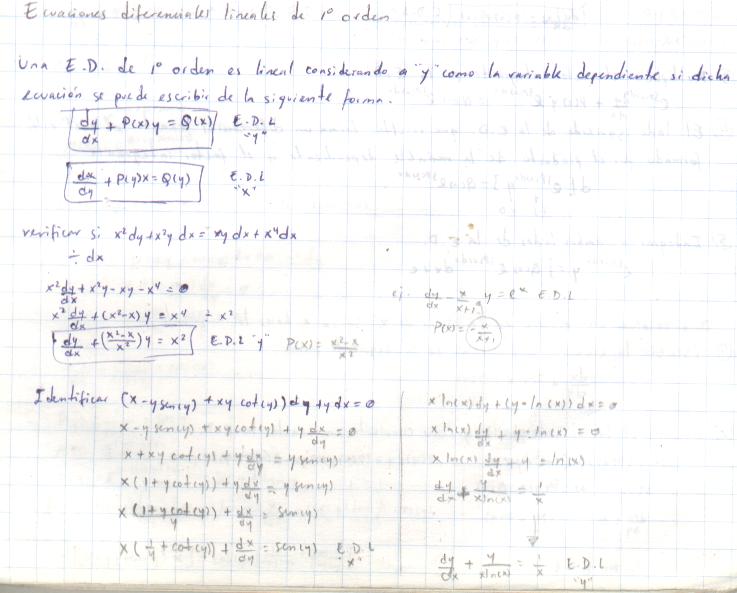 Ecuaciones diferenciales lineales de 1º orden
Una E.D. de 1º orden es lineal considerando a "y" como la variable dependiente si dicha
ecuación se puede escribir de la siguiente forma.
dy/dx + P(x)y = Q(x) E.D.L "y"
dx/dy + P(y)x = Q(y) E.D.L "x"
verificar si x²dy + x²y dx = xy dx + x⁴dx
÷ dx
x² dy/dx + x²y - xy - x⁴ = 0
x² dy/dx + (x²-x) y = x⁴ ÷ x²
dy/dx + ((x²-x)/x²) y = x² E.D.L "y" P(x) = (x²-x)/x²
ej. dy/dx - x/(x+1) y = eˣ E.D.L
P(x) = - x/(x+1)
Identificar (x - y sen(y) + xy cot(y)) dy + y dx = 0
x - y sen(y) + xy cot(y) + y dx/dy = 0
x + xy cot(y) + y dx/dy = y sen(y)
x (1 + y cot(y)) + y dx/dy = y sen(y)
x (1 + y cot(y))/y + dx/dy = sen(y)
x (1/y + cot(y)) + dx/dy = sen(y) E.D.L "x"
x ln(x) dy + (y - ln(x)) dx = 0
x ln(x) dy/dx + y - ln(x) = 0
x ln(x) dy/dx + y = ln(x)
dy/dx + y/(x ln(x)) = 1/x
dy/dx + y/(x ln(x)) = 1/x E.D.L "y"